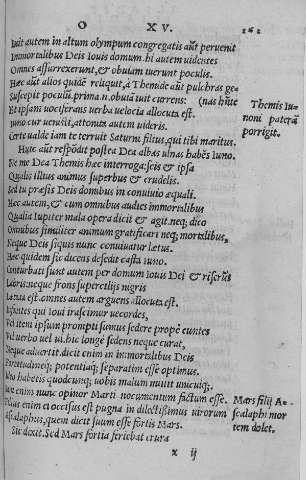 O XV. 162
Iuit autem in altum olympum congregatis aūt peruenit
Immortalibus Deis Iouis domum. hi autem uidentes
Omnes assurrexerunt, & obuiam iuerunt poculis.
Haec aūt alios quidē reliquit, à Themide aūt pulchras ge
Suscepit poculū. prima.n. obuiā iuit currens: (nas hñte
Et ipsam uociferans uerba uelocia allocuta est.
Iuno cur uenisti, attonita autem uideris.
Certe ualde iam te terruit Saturni filius, qui tibi maritus.
Huic aūt respōdit postea Dea albas ulnas habēs Iuno.
Ne me Dea Themis haec interroga: scis & ipsa
Qualis illius animus superbus & crudelis.
Sed tu praesis Deis domibus in conuiuio aequali.
Haec autem, & cum omnibus audies immortalibus
Qualia Iupiter mala opera dicit & agit. neq; dico
Omnibus similiter animum gratificari neq; mortalibus,
Neque Deis siquis nunc conuiuatur laetus.
Haec quidem sic dicens desedit casta iuno.
Conturbati sunt autem per domum Iouis Dei & riserūt
Labris: neque frons super cilijs nigris
Laeta est. omnes autem arguens allocuta est.
Infantes qui Ioui irascimur uecordes,
Vel item ipsum prompti sumus sedere propè euntes
Vel uerbo uel ui. hic longè sedens neque curat,
Neque aduertit. dicit enim in immortalibus Deis
Fortitudineq; potentiaq; separatim esse optimus.
habetis quodcunq; uobis malum mittit unicuiq;.
enim nunc opinor Marti nocumentum factum esse.
Filius enim ei occisus est pugna in dilectissimus uirorum
Ascalaphus, quem dicit suum esse fortis Mars.
Sic dixit. Sed Mars fortia feriebat crura
x ij
Themis Iu-
noni paterā
porrigit.
Mars filij A-
scalaphi mor
tem dolet.